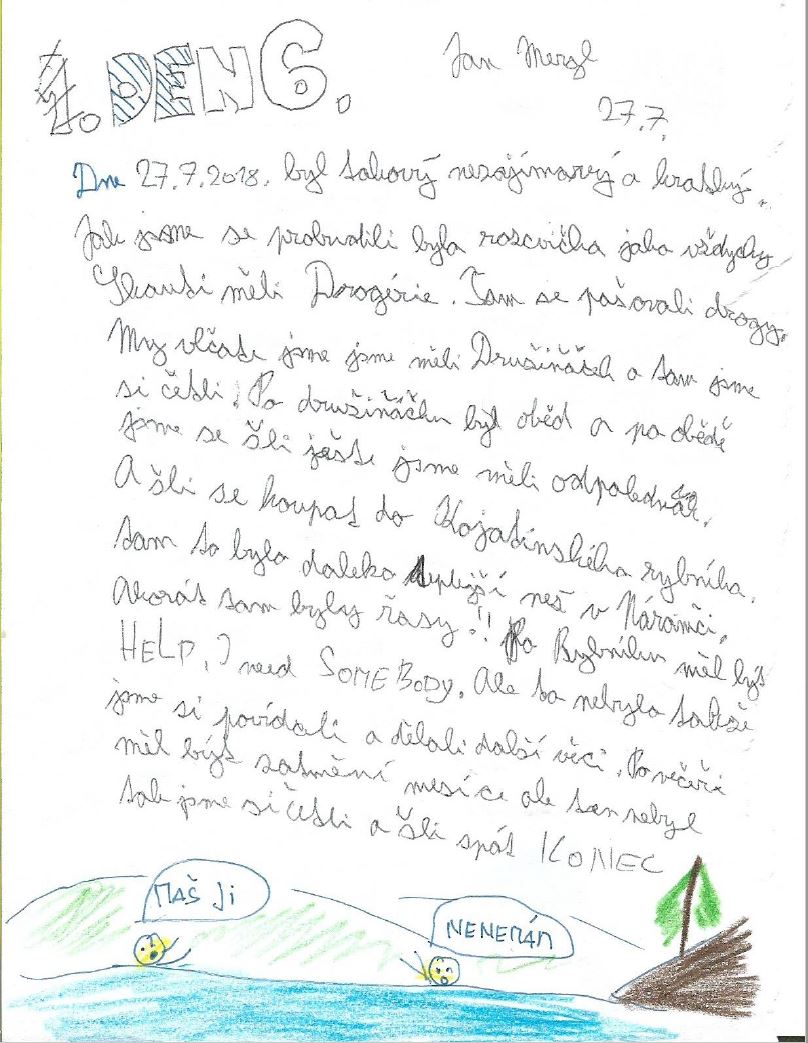 1. DEN 6.
Jan Mergl
27.7.
Dne 27.7.2018. byl takový nezajímavý a kratký.
Jak jsme se probudili byla rozcvička jako vždycky
Skauti měli Drogérie. Tam se pašovali drogy.
My vlčata jsme jsme měli Družiňáček a tam jsme
si četli. Po družiňáčku byl oběd a po obědě
jsme se šli ještě jsme měli odpoledňák.
A šli se koupat do Kojatínského rybníka.
tam to bylo daleko teplejší než v Náramči.
Akorát tam byly řasy!! Po Rybníku měl být
HELP, I need SOMEBODY. Ale to nebylo takže
jsme si povídali a dělali další věci. Po večeři
měl být zatmění mesíce ale ten nebyl
tak jsme si četli a šli spát KONEC
MAŠ JI
NENEMÁM